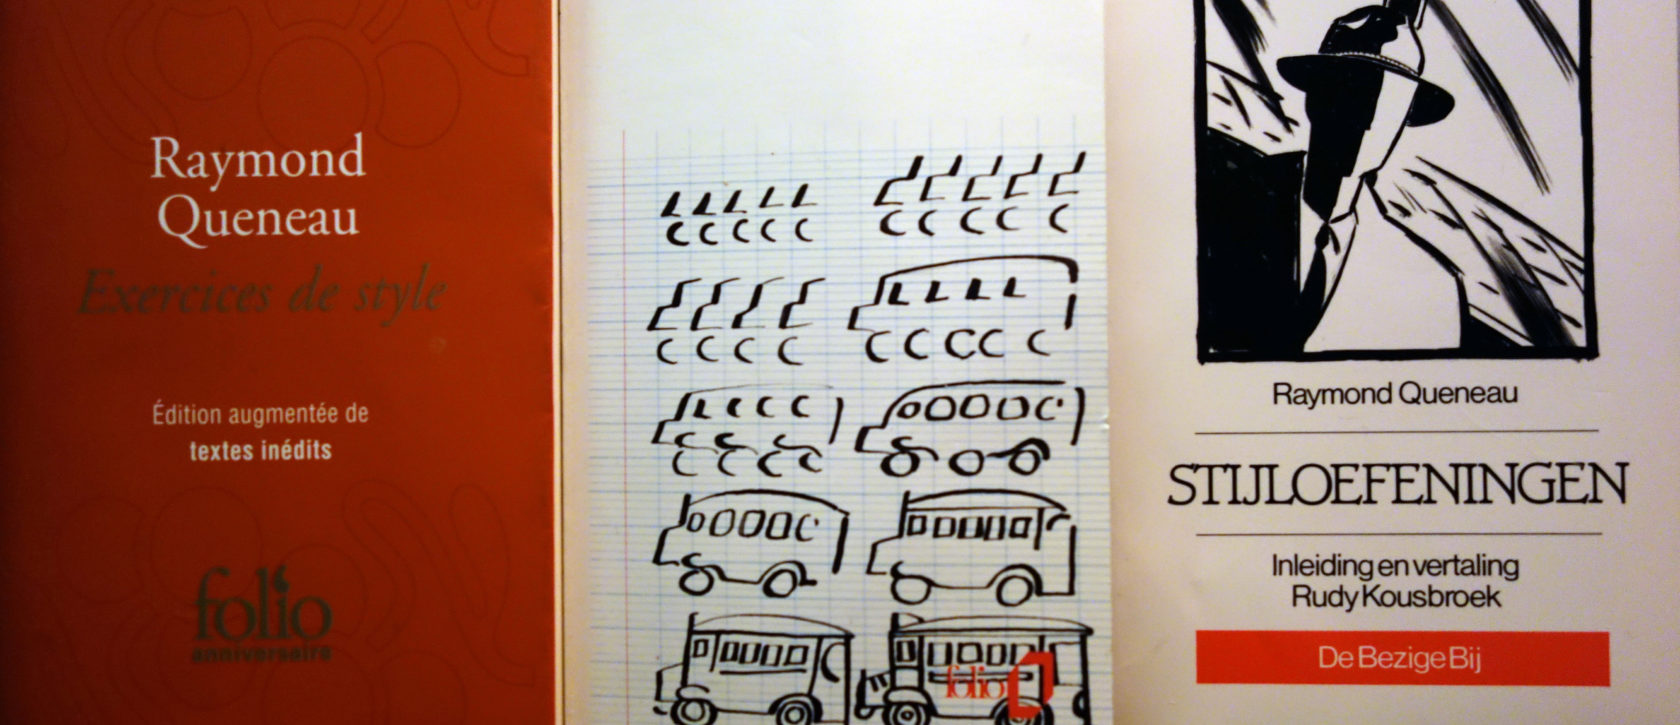 Raymond
Queneau
Exercices de style
Édition augmentée de
textes inédits
folio
anniversaire
folio
Raymond Queneau
STIJLOEFENINGEN
Inleiding en vertaling
Rudy Kousbroek
De Bezige Bij